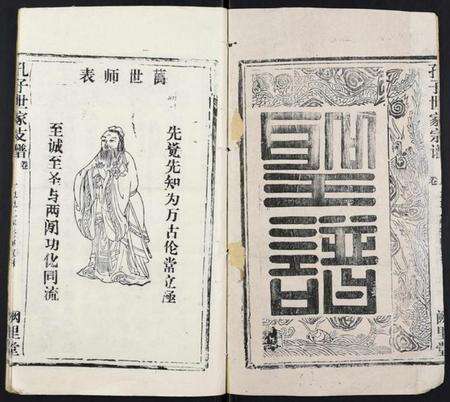 孔子世家宗谱
卷
阙里堂
萬世师表
先觉先知为万古伦常立極
至诚至圣与两间功化同流
孔子世家支譜
卷
阙里堂